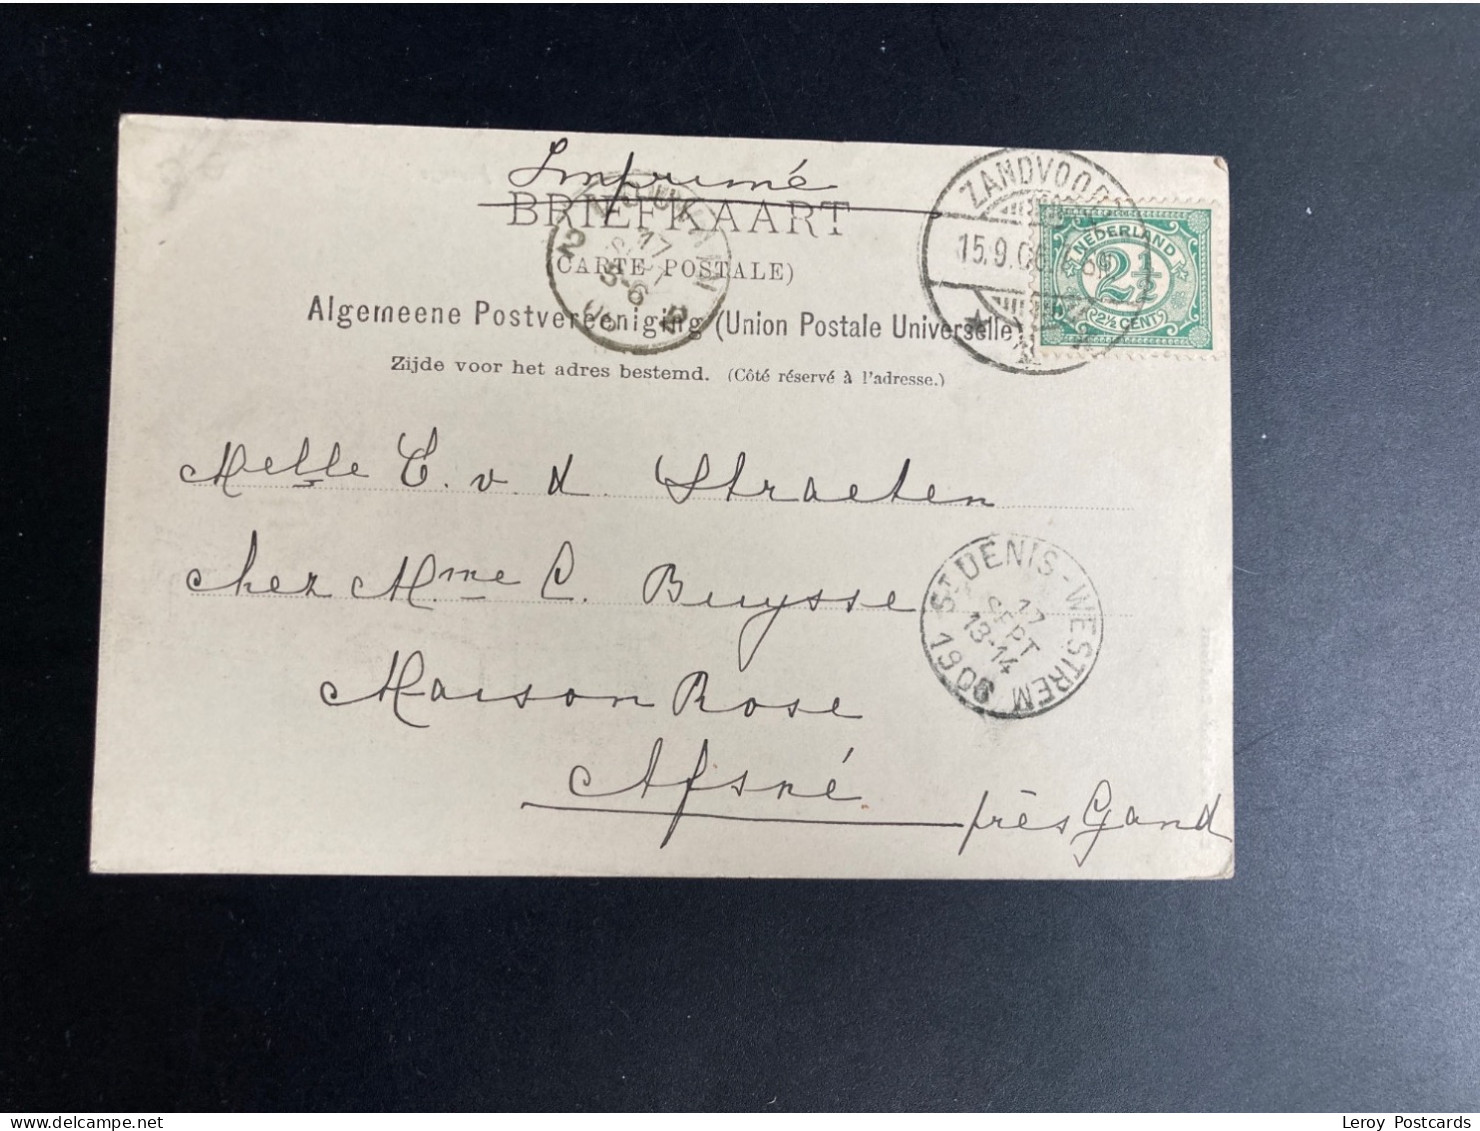 Imprimé
BRIEFKAART
(CARTE POSTALE)
Algemeene Postvereeniging (Union Postale Universelle)
Zijde voor het adres bestemd. (Côté réservé à l'adresse.)
ZANDVOORT
15.9.06
NEDERLAND
2½
(2½ CENT)
17
5-6
06
Melle C. v. d. Straeten
chez Mme C. Buysse
Maison Rose
Afsné près Gand
ST DENIS-WESTREM
17
SEPT
13-14
1906
Leroy Postcards